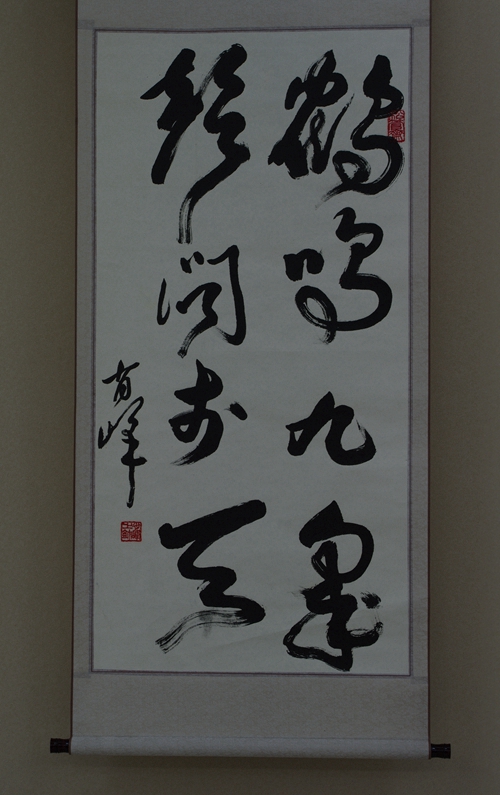 鶴鳴九皋
聲聞於天
峰